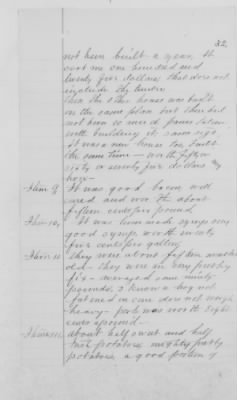 32.
not been built a year. It
cost me one hundred and
twenty five dollars, that does not
include the timber
the other house was built
on the same plan but that had
not been so covered
with building it same size
it was a new house too, built
the same time — worth fifteen
sixty or seventy five dollars
Item 9 It was good bacon, well
cured and worth about
fifteen cents per pound
Item 10, It was home made syrup very
good syrup worth seventy
five cents per gallon
Item 11 They were about fifteen months
old — they were in very
fix — averaged one ninety
pounds, I know a hog not
fattened in cure does not weigh
heavy — pork was worth eight
cents a pound —
Item 12 About half sweet and half
Irish potatoes mighty pretty
potatoes a good portion of